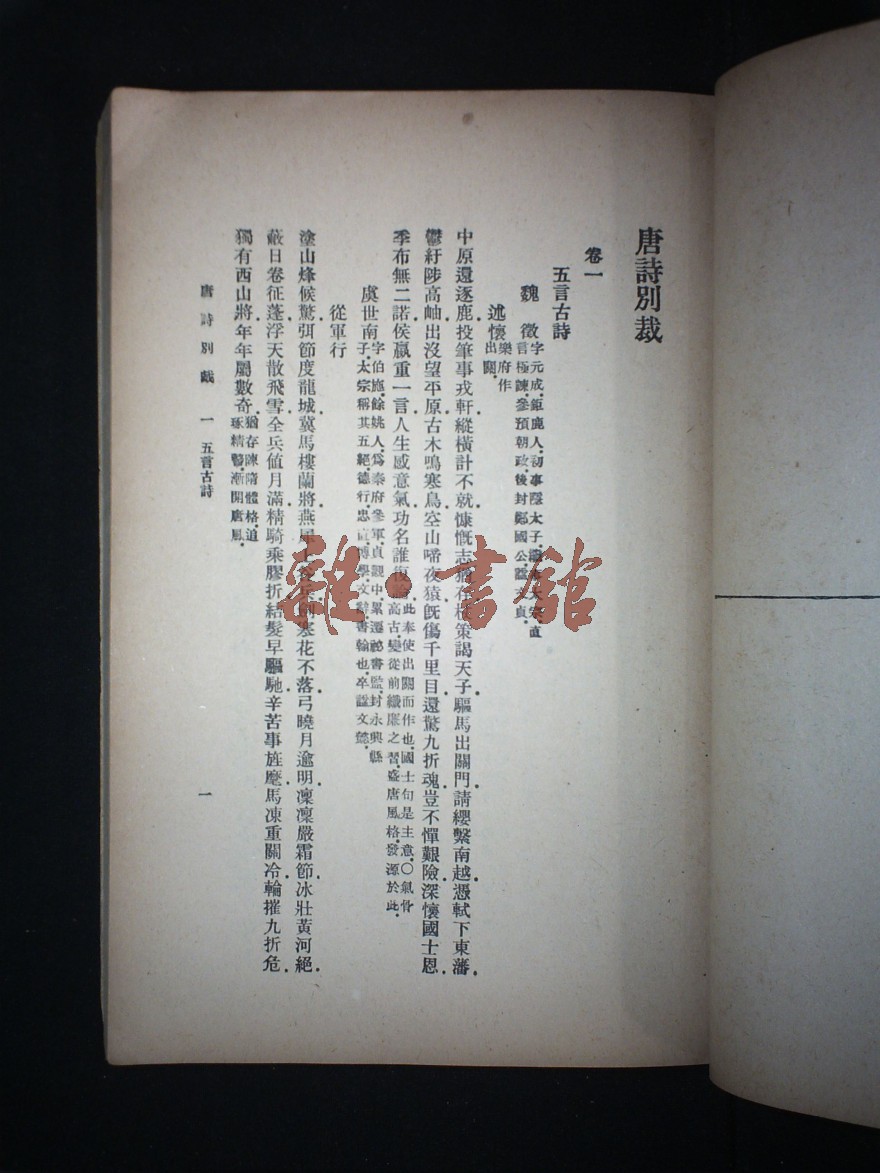 唐詩別裁
卷一
五言古詩
魏徵 字元成，鉅鹿人，初事隱太子，
言極諫，參預朝政，後封鄭國公，諡文貞。
述懷 樂府作
出關。
中原還逐鹿投筆事戎軒縱橫計不就慷慨志猶存策謁天子驅馬出關門請纓繫南越憑軾下東藩
鬱紆陟高岫出沒望平原古木鳴寒鳥空山啼夜猿既傷千里目還驚九折魂豈不憚艱險深懷國士恩
季布無二諾侯嬴重一言人生感意氣功名誰復 此奉使出關而作也，國士句是主意，○氣骨
高古，變從前纖靡之習，盛唐風格，發源於此。
虞世南 字伯施，餘姚人，爲秦府參軍，貞觀中累遷祕書監，封永興縣
子，太宗稱其五絕，德行，忠直，博學，文辭，書翰也，卒諡文懿。
從軍行
塗山烽候驚弭節度龍城冀馬樓蘭將燕 寒花不落弓曉月逾明凜凜嚴霜節冰壯黃河絕
蔽日卷征蓬浮天散飛雪全兵値月滿精騎乘膠折結髮早驅馳辛苦事旌麾馬凍重關冷輪摧九折危
獨有西山將年年屬數奇 猶存陳隋體格，追
琢精警，漸開唐風。
唐詩別裁 一 五言古詩 一
雜·書館